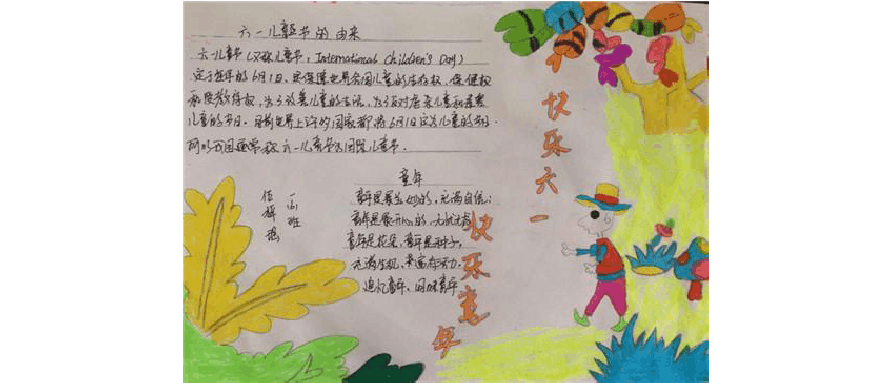 六一儿童节的由来
六一儿童节(又称儿童节，International Children's Day)
定于每年的6月1日，是保障世界各国儿童的生存权，保健权
和受教育权，为了改善儿童的生活，为了反对虐杀儿童和毒害
儿童的节日。目前世界上许多国家都将6月1日定为儿童的节日
所以我国通常称六一儿童节为国际儿童节。
快乐六一
童年
童年是最美妙的，充满自信心
童年是最开心的，无忧无虑
童年是花朵，童年是种子，
充满生机，
追忆童年，回味童年
一
班
快乐童年